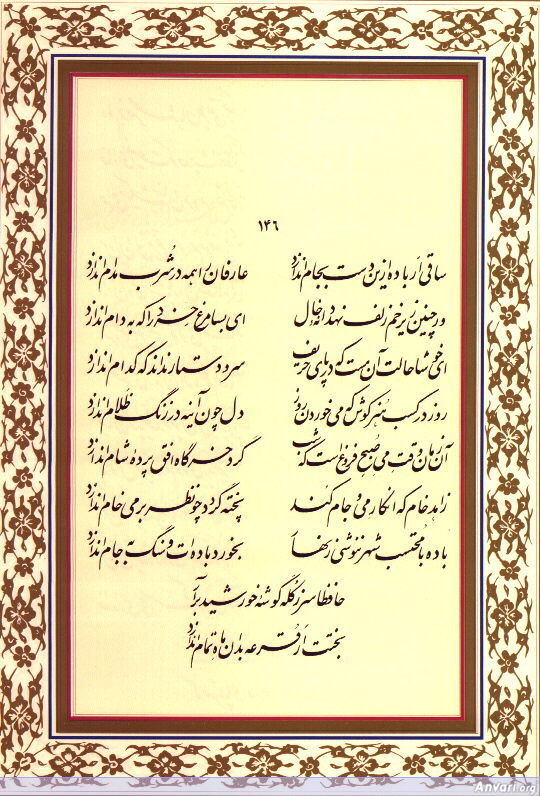 ۱۴۶
ساقی ار باده ازین دست بجام اندازد عارفان را همه در شرب مدام اندازد
ور چنین زیر خم زلف نهد دانه خال ای بسا مرغ خرد را که به دام اندازد
ای خوشا حالت آن مست که در پای حریف سر و دستار نداند که کدام اندازد
روز در کسب هنر کوش که می خوردن روز دل چون آینه در زنگ ظلام اندازد
آن زمان وقت می صبح فروغ است که شب گرد خرگاه افق پرده شام اندازد
زاهد خام که انکار می و جام کند پخته گردد چو نظر بر می خام اندازد
باده با محتسب شهر ننوشی زنهار بخورد باده ات و سنگ به جام اندازد
حافظا سر ز کله گوشه خورشید برآر
بختت ار قرعه بدان ماه تمام اندازد
Anvari.org